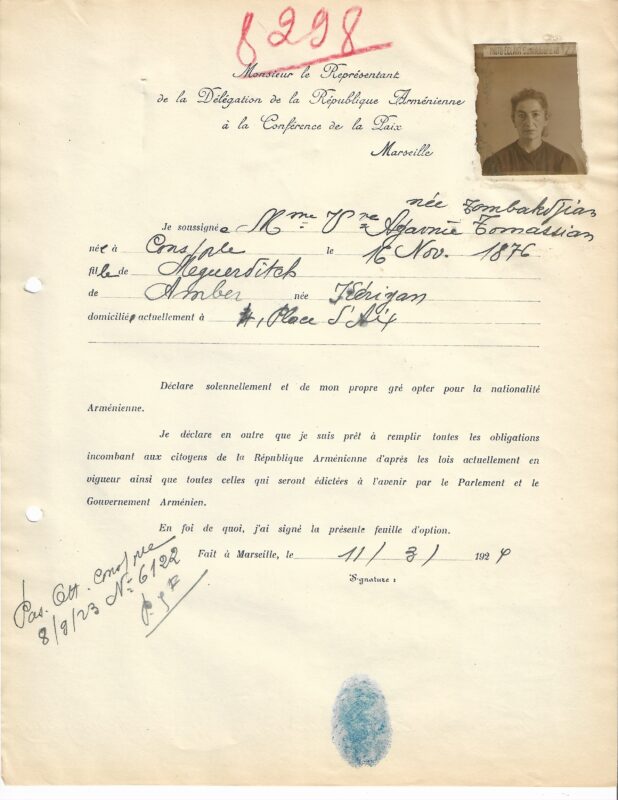 8298
PHOTO ECLAIR
Monsieur le Représentant
de la Délégation de la République Arménienne
à la Conférence de la Paix
Marseille
née Zombakdjian
Je soussignée Mme Vve Agavnie Tomassian
née à Consple le 16 Nov. 1876
fille de Meguerditch
de Amber née Kérizan
domiciliée actuellement à 4, Place d'Aix
Déclare solennellement et de mon propre gré opter pour la nationalité
Arménienne.
Je déclare en outre que je suis prêt à remplir toutes les obligations
incombant aux citoyens de la République Arménienne d'après les lois actuellement en
vigueur ainsi que toutes celles qui seront édictées à l'avenir par le Parlement et le
Gouvernement Arménien.
En foi de quoi, j'ai signé la présente feuille d'option.
Fait à Marseille, le 11/3/ 1924
Signature :
Pas. Ott. Consple
8/9/23 No 6122